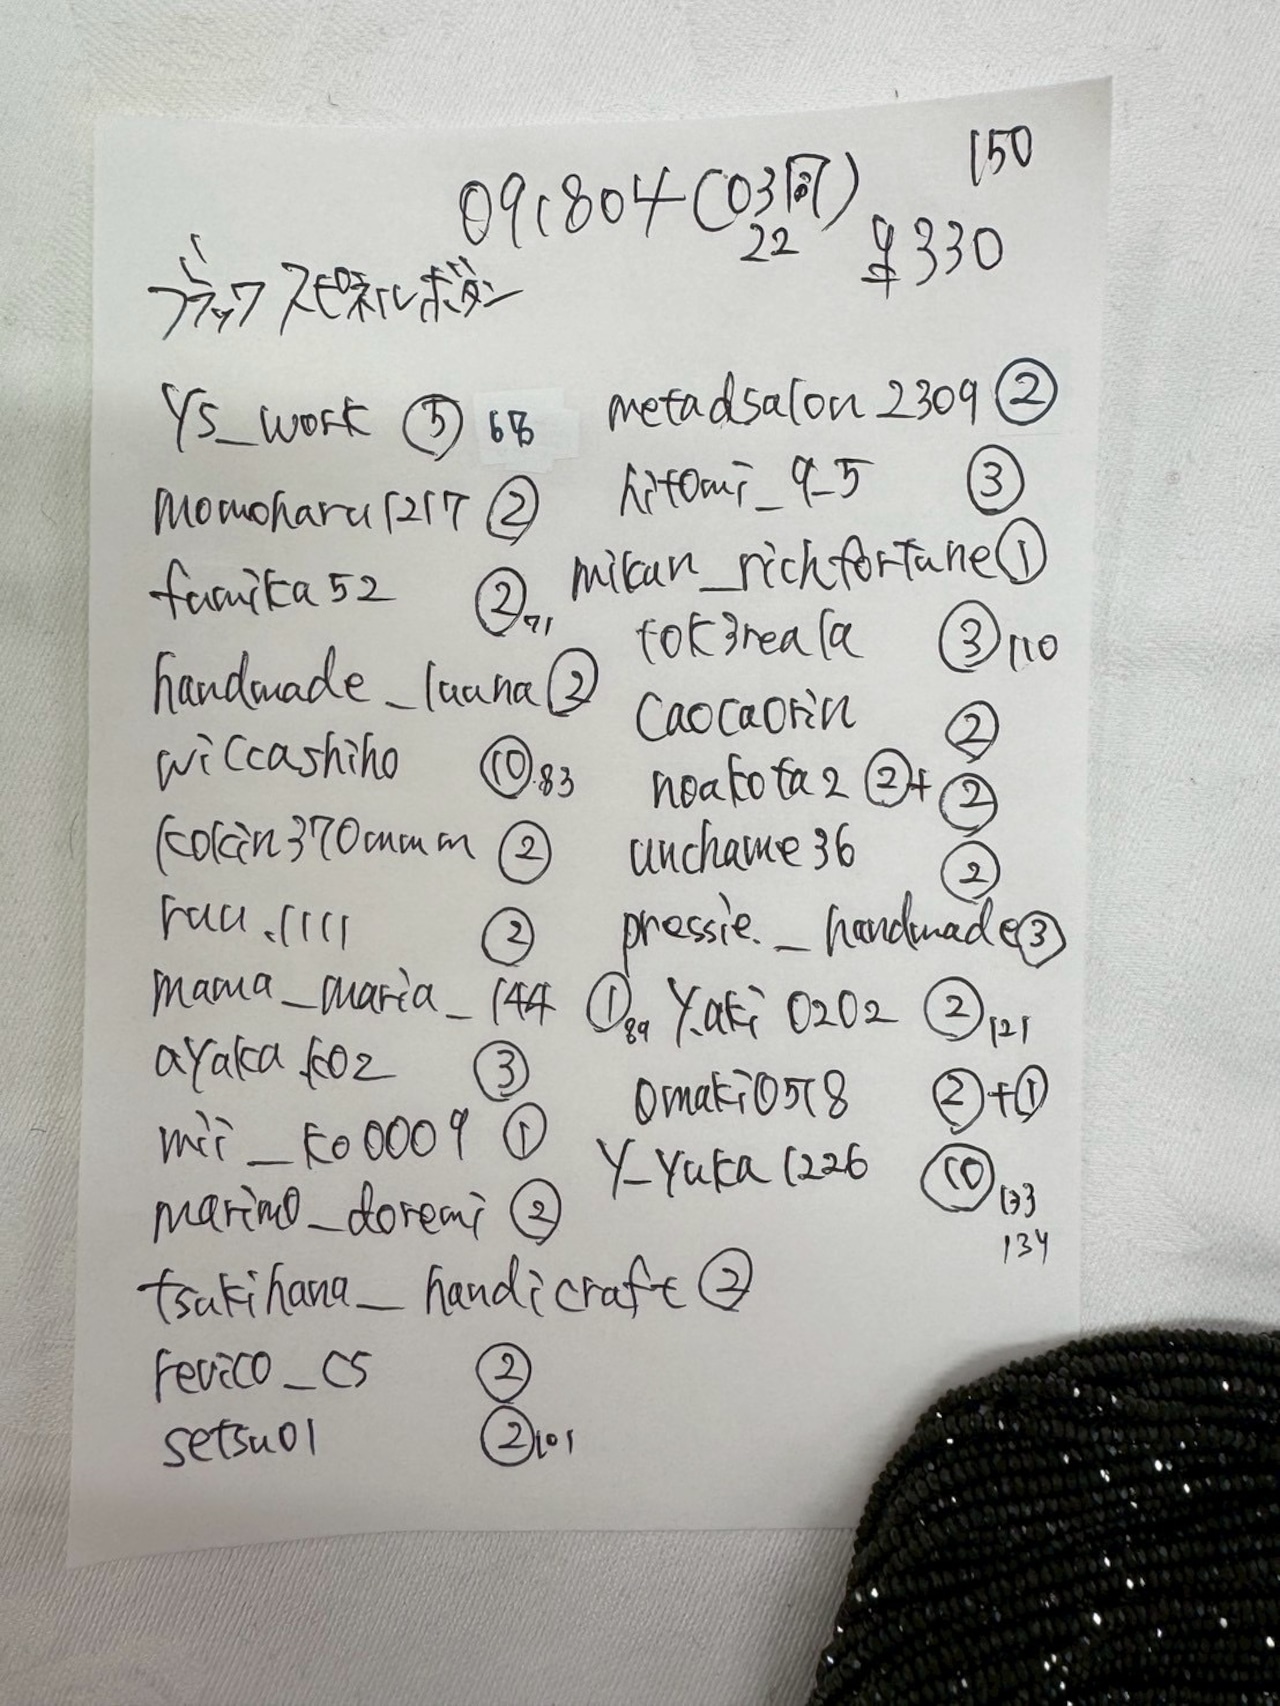 150
091804(03同)
22
¥330
ブラックスピネルボタン
Ys_work ⑤ 68
momoharu1217 ②
fumika52 ② 71
handmade_luuna ②
wiccashiho ⑩ 83
kokin370mmm ②
ruu.1111 ②
mama_maria_144 ① 89
ayaka.k02 ③
mii_ko0009 ①
marimo_doremi ②
tsukihana_handicraft ②
revico_cs ②
setsu01 ② 101
metadsalon2309 ②
hitomi_9_5 ③
mikan_richfortune ①
tok3reala ③ 110
caocaorin ②
noakota2 ②+②
unchame36 ②
pressie._handmade ③
Y.aki0202 ② 121
omaki0518 ②+①
Y_Yuka1226 ⑩ 133
134